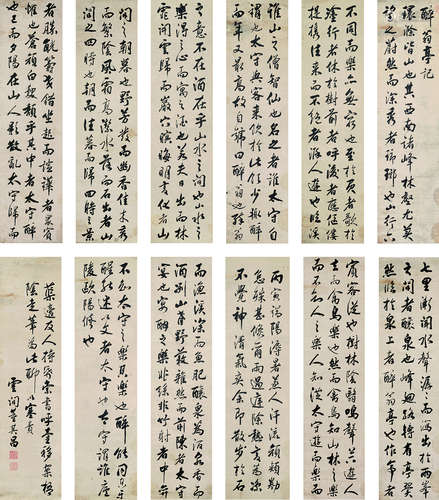 醉翁亭記
環滁皆山也其西南諸峰林壑尤美
望之蔚然而深秀者瑯琊也山行六
不同而樂亦無窮也至於負者歌於
塗行者休於樹前者呼後者應傴僂
提攜往來而不絕者滁人遊也臨溪
也名之者誰太守自
謂也太守與客來飲於此飲少輒醉
而年又最高故自號曰醉翁也醉翁
之意不在酒在乎山水之間也山水之
樂得之心而寓之酒也若夫日出而林
霏開雲歸而巖穴暝晦明變化者山
間之朝暮也野芳發而幽香佳木秀
而繁陰風霜高潔水落而石出者山
間之四時也朝而往暮而歸四時之景
者勝觥籌交錯坐起而諠譁者衆賓
懽也蒼顏白髮頹乎其中者太守
也已而夕陽在山人影散亂太守歸而
七里漸聞水聲潺潺而瀉出于兩峰
之間者釀泉也峰迴路轉有亭翼
然臨于泉上者醉翁亭也作亭
賓客從也樹林陰翳鳴聲上下遊人
去而禽鳥樂也然而禽鳥知山林之樂
而不知人之樂人知從太守遊而樂
不覺神清氣爽余即散步於石
而漁溪深而魚肥釀泉為酒泉香而
酒洌山肴野蔌雜然而前陳者太守
宴也宴酣之樂非絲非竹射者中
不知太守之樂其樂也醉能同其樂
醒能述以文者太守也太守謂誰廬
陵歐陽修也
雲間董其昌